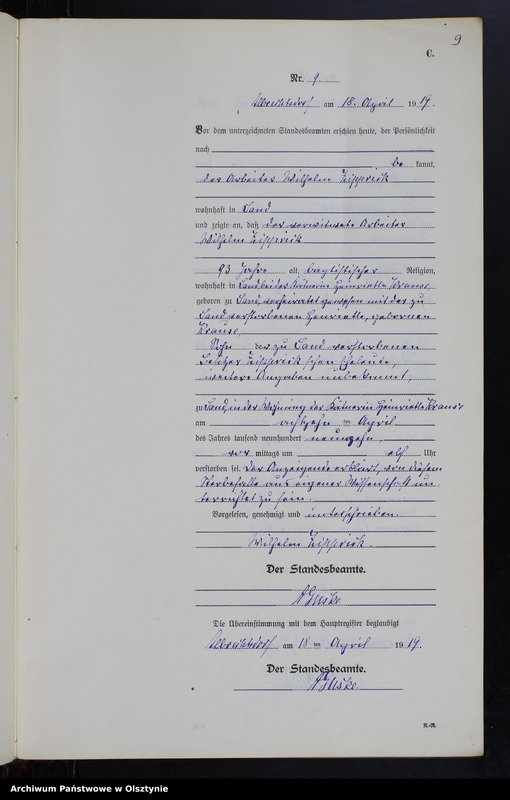 9
C.
Nr. 9.
Albrechtsdorf am 18. April 1919.
Vor dem unterzeichneten Standesbeamten erschien heute, der Persönlichkeit
nach
be kannt,
der Arbeiter Wilhelm
wohnhaft in Sand
und zeigte an, daß der verwitwete Arbeiter
Wilhelm
93 Jahre alt, baptistischer Religion,
wohnhaft in Sand bei der Kätnerin Heinriette Krause,
geboren zu Sand, verheiratet gewesen mit der zu
Sand verstorbenen Henriette, geborenen
Krause,
Sohn der zu Sand verstorbenen
Besitzer schen Eheleute,
weitere Angaben unbekannt,
zu Sand, in der Wohnung der Kätnerin Heinriette Krause
am achtzehn ten April
des Jahres tausend neunhundert neunzehn,
vor mittags um elf Uhr
verstorben sei. Der Anzeigende erklärt, von diesem
Sterbefalle aus eigener Wissenschaft un-
terrichtet zu sein.
Vorgelesen, genehmigt und unterschrieben.
Wilhelm
Der Standesbeamte.
Die Übereinstimmung mit dem Hauptregister beglaubigt
Albrechtsdorf am 18 ten April 1919.
Der Standesbeamte.
R.-R.
Archiwum Państwowe w Olsztynie